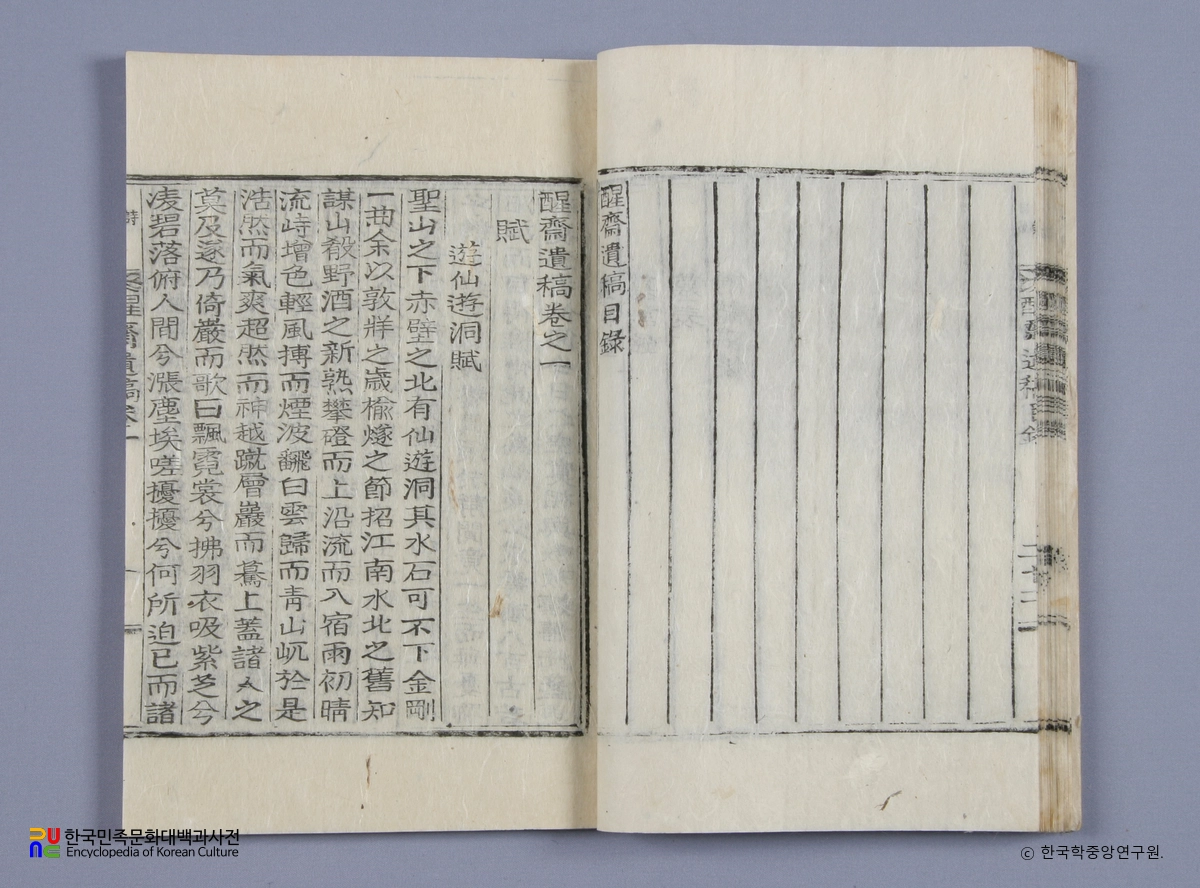 醒齋遺稿目錄
醒齋遺稿卷之一
賦
遊仙遊洞賦
聖山之下赤壁之北有仙遊洞其水石可不下金剛
一曲余以敦牂之歲楡燧之節招江南水北之舊知
謀山殽野酒之新熟攀磴而上沿流而入宿雨初晴
流峙增色輕風搏而煙波飜白雲歸而靑山屼於是
浩然而氣爽超然而神越蹴層巖而驀上蓋諸人之
莫及遂乃倚巖而歌曰飄霓裳兮拂羽衣吸紫芝兮
凌碧落俯人間兮漲塵埃嗟擾擾兮何所迫已而諸
醒齋遺稿卷一
한국민족문화대백과사전
Encyclopedia of Korean Culture
ⓒ 한국학중앙연구원.